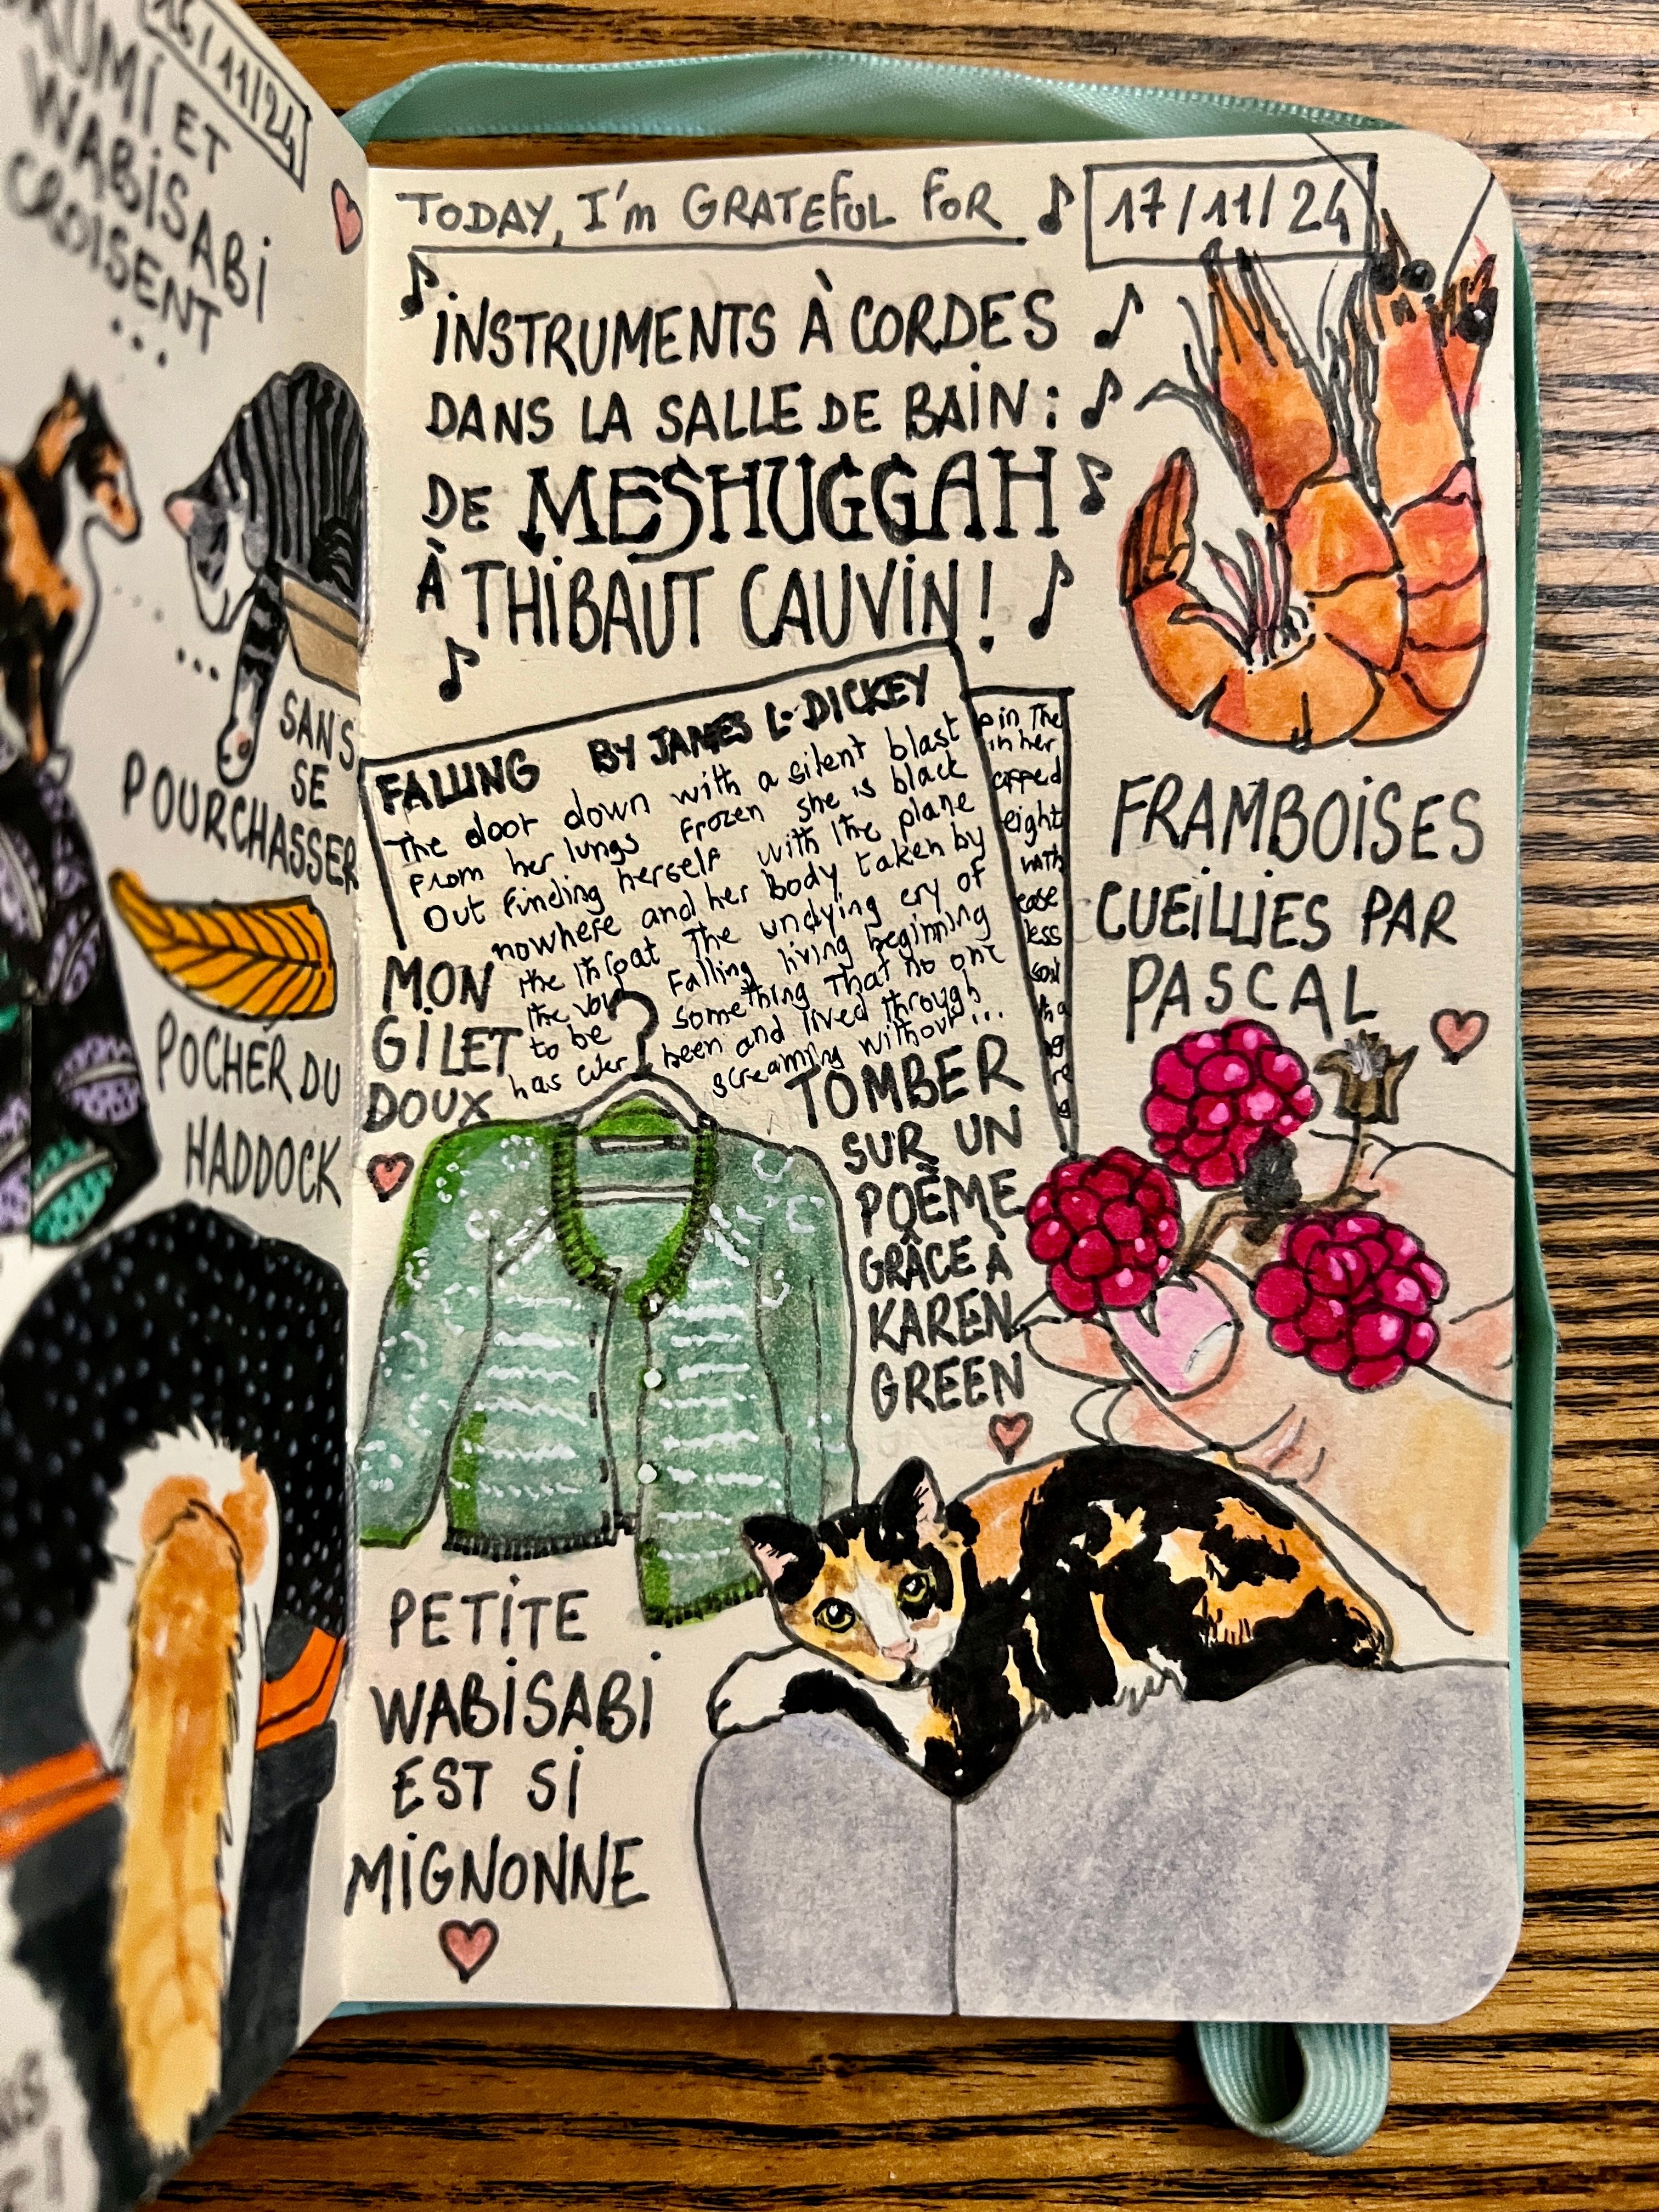 16/11/24
ET
WABiSABi
CROISENT
...
SANS
SE
POURCHASSER
POCHER DU
HADDOCK
TODAY, I'm GRATEFUL FOR
17/11/24
iNSTRUMENTS À CORDES
DANS LA SALLE DE BAiN :
DE MESHUGGAH
À THiBAUT CAUViN !
FALLING BY JAMES L. DICKEY
The door down with a silent blast
From her lungs frozen she is black
Out finding herself with the plane
nowhere and her body taken by
the throat The undying cry of
the void falling living beginning
to be something That no one
has ever been and lived through
screaming without ...
in The
in her
eight
with
less
MON
GiLET
DOUX
TOMBER
SUR UN
POÊME
GRÂCE À
KAREN
GREEN
FRAMBOiSES
CUEiLLiES PAR
PASCAL
PETiTE
WABiSABi
EST Si
MiGNONNE